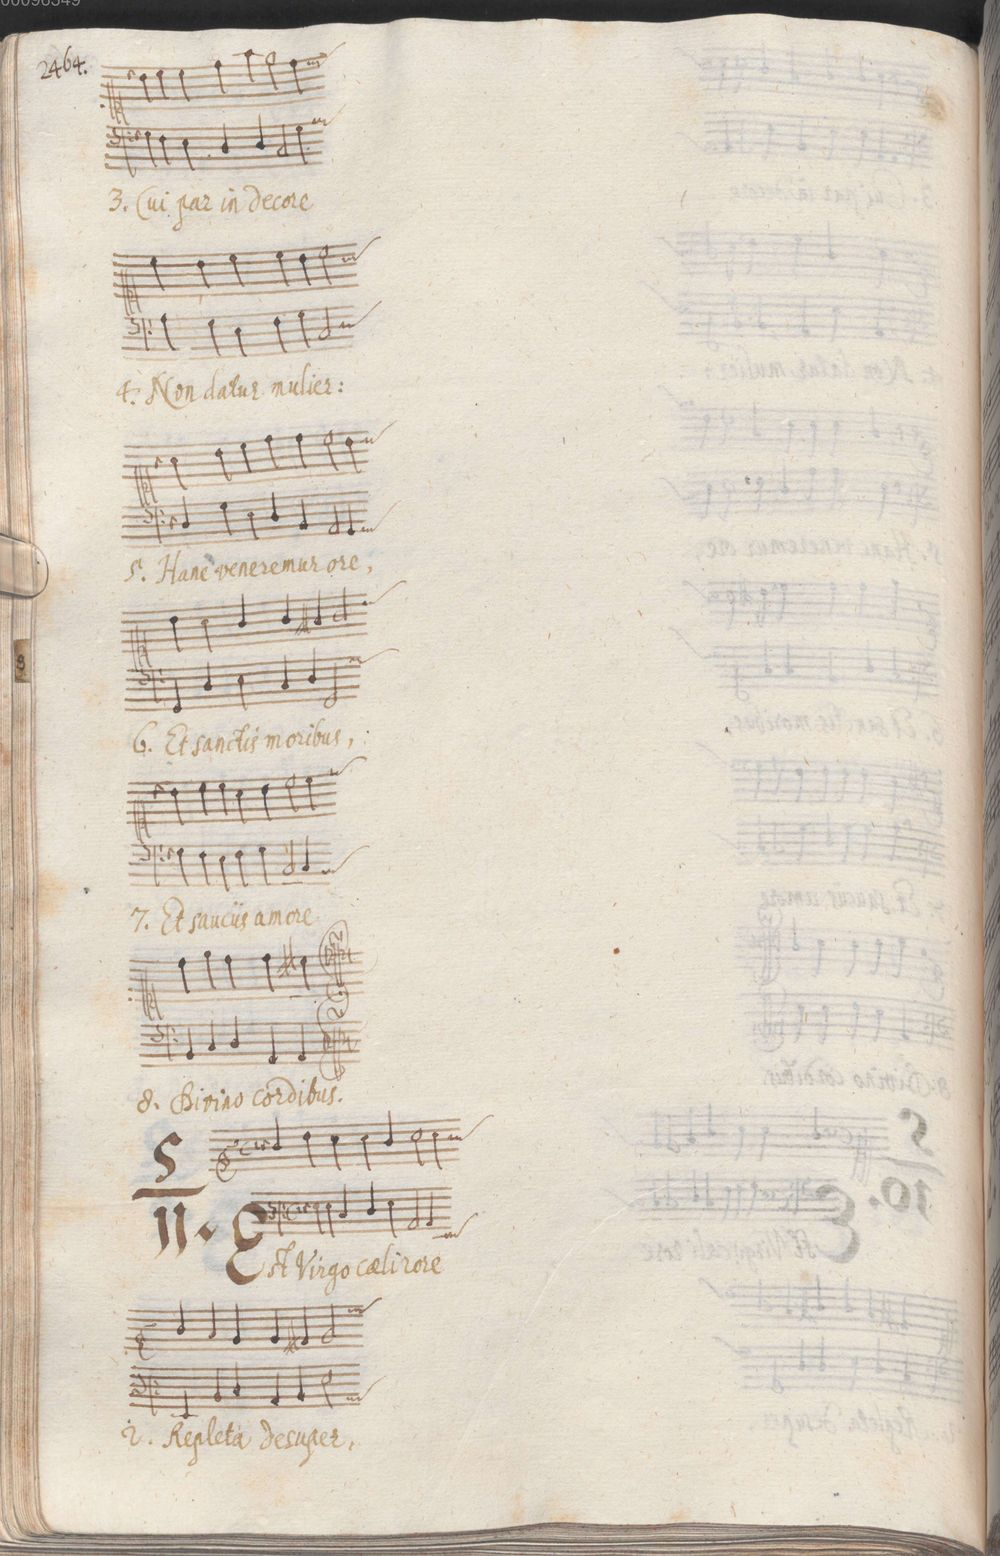 2464.
3. Cui par in decore
4. Non datur mulier:
5. Hanc veneremur ore,
6. Et sanctis moribus,
7. Et sauciis amore
8. Divino cordibus.
5
11. Est Virgo cæli rore
2. Repleta desuper,